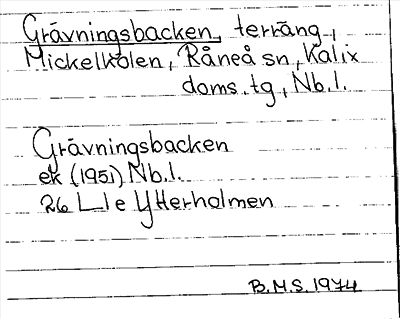 Grävningsbacken, terräng,
Mickelkölen, Råneå sn, Kalix
doms.tg, Nb.l.
Grävningsbacken
ek (1951) Nb.l.
26 L1e Ytterholmen
B.M.S. 1974